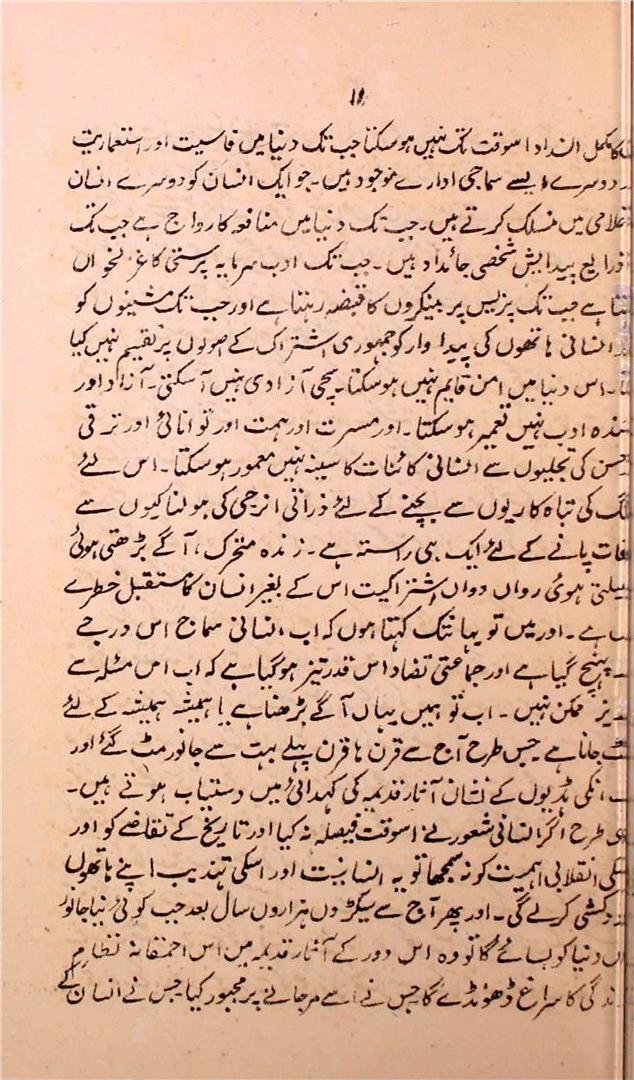 ۱۸
کا مکمل انسداد اسوقت تک نہیں ہوسکتا جب تک دنیا میں فاسیت اور استعماریت
دوسرے ایسے سماجی ادارے موجود ہیں۔ جو ایک انسان کو دوسرے انسان
غلامی میں منسلک کرتے ہیں۔ جب تک دنیا میں منافعہ کا رواج ہے جب تک
ذرایع پیدایش شخصی جائداد ہیں۔ جب تک ادب سرمایہ پرستی کا غزلخواں
ہے جب تک پریس پر بینکروں کا قبضہ رہتا ہے اور جب تک مشینوں کو
انسانی ہاتھوں کی پیداوار کو جمہوری اشتراک کے اصولوں پر تقسیم نہیں کیا
۔ اس دنیا میں امن قایم نہیں ہوسکتا۔ سچی آزادی نہیں آسکتی۔ آزاد اور
ادب نہیں تعمیر ہوسکتا۔ اور مسرت اور ہمت اور توانائی اور ترقی
حسن کی تجلیوں سے انسانی کائنات کا سینہ نہیں معمور ہوسکتا۔ اس لئے
کی تباہ کاریوں سے بچنے کے لئے ذراتی انرجی کی ہولناکیوں سے
پانے کے لئے ایک ہی راستہ ہے۔ زندہ متحرک، آگے بڑھتی ہوئی
پھیلتی ہوئی رواں دواں اشتراکیت اس کے بغیر انسان کا مستقبل خطرے
ہے۔ اور میں تو یہانتک کہتا ہوں کہ اب انسانی سماج اس درجے
پہنچ گیا ہے اور جماعتی تضاد اس قدر تیز ہوگیا ہے کہ اب اس مسئلہ سے
ممکن نہیں۔ اب تو ہمیں یہاں آگے بڑھنا ہے یا ہمیشہ ہمیشہ کے لئے
جانا ہے۔ جس طرح آج سے قرن ہا قرن پہلے بہت سے جانور مٹ گئے اور
انکی ہڈیوں کے نشان آثار قدیمہ کی کہدائی میں دستیاب ہوتے ہیں۔
طرح اگر انسانی شعور نے اسوقت فیصلہ نہ کیا اور تاریخ کے تقاضے کو اور
انقلابی اہمیت کو نہ سمجھا تو یہ انسانیت اور اسکی تہذیب اپنے ہاتھوں
کشی کرلے گی۔ اور پھر آج سے سیکڑوں ہزاروں سال بعد جب کوئی نیا جانور
دنیا کو بسائے گا تو وہ اس دور کے آثار قدیمہ میں اس احمقانہ نظام
کا سراغ ڈھونڈے گا جس نے اسے مرجانے پر مجبور کیا جس نے انسان کے